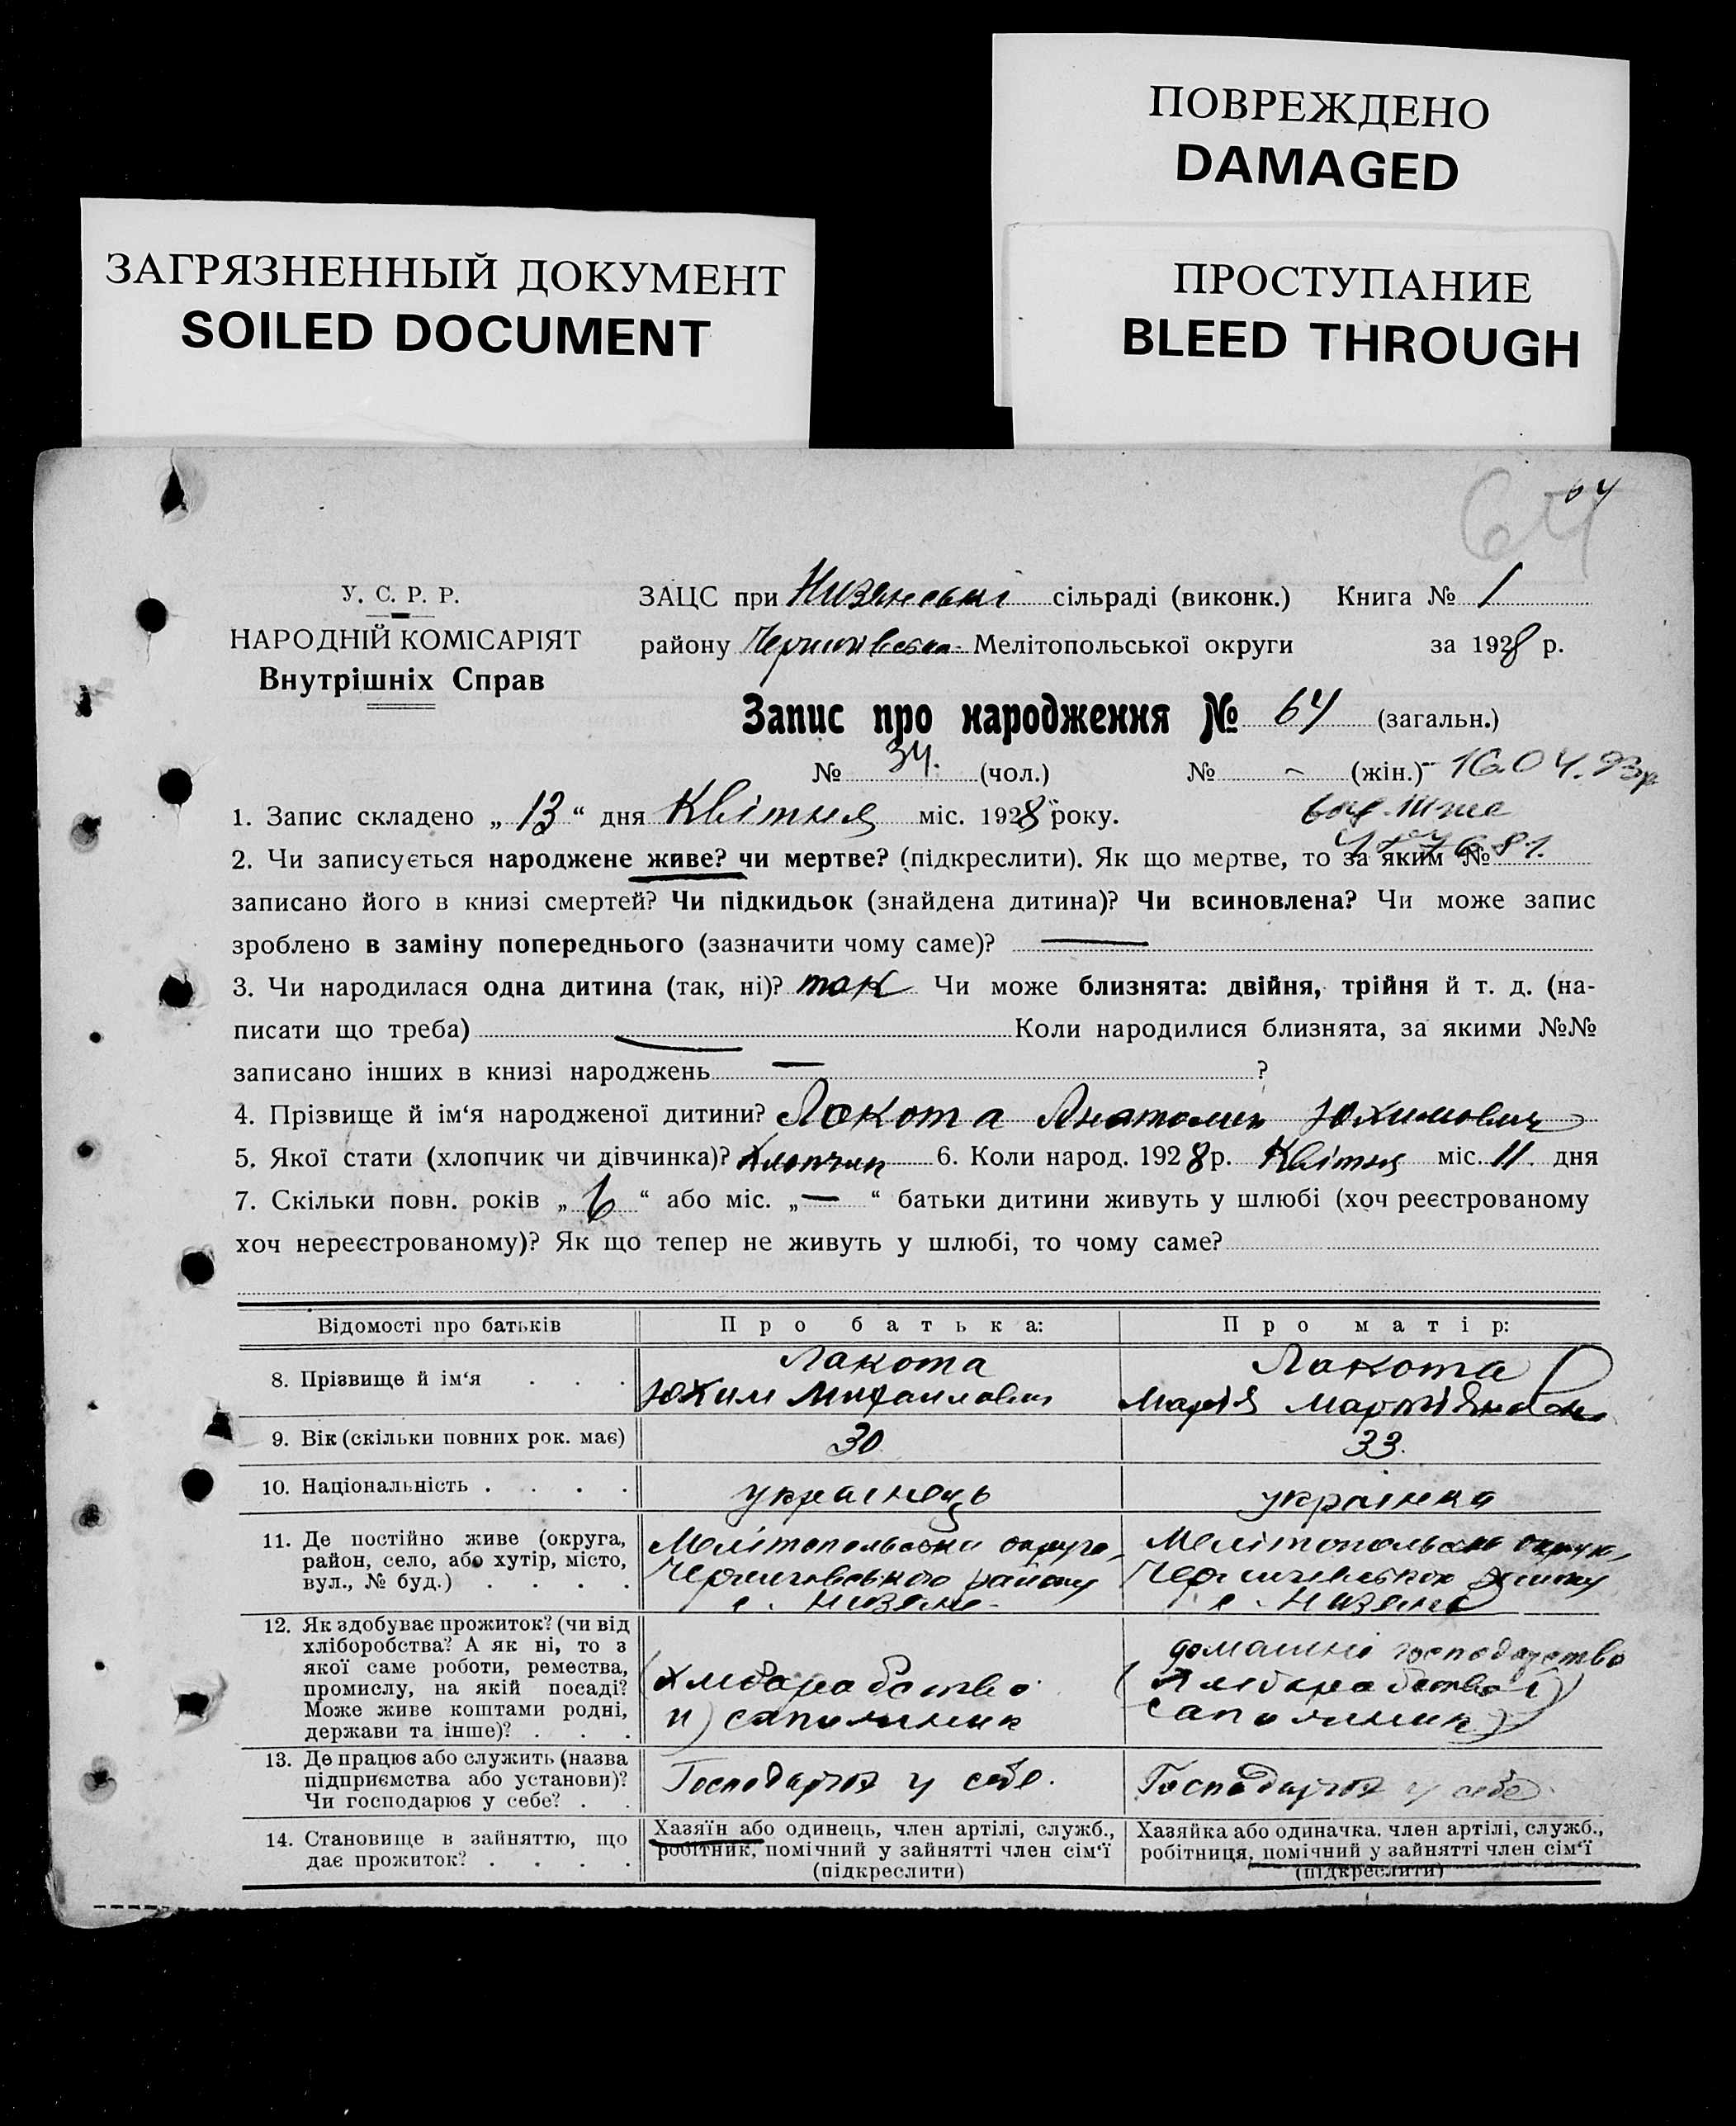 ПОВРЕЖДЕНО
DAMAGED
ЗАГРЯЗНЕННЫЙ ДОКУМЕНТ
SOILED DOCUMENT
ПРОСТУПАНИЕ
BLEED THROUGH
64
64
У. С. Р. Р.
НАРОДНІЙ КОМІСАРІЯТ
Внутрішніх Справ
ЗАЦС при Низянські сільраді (виконк.) Книга № 1
району Мелітопольської округи за 1928 р.
Запис про народження № 64 (загальн.)
№ 34. (чол.) № - (жін.) 16.04.93р
1. Запис складено „ 13 “ дня Квітня міс. 1928 року.
2. Чи записується народжене живе? чи мертве? (підкреслити). Як що мертве, то за яким №
записано його в книзі смертей? Чи підкидьок (знайдена дитина)? Чи всиновлена? Чи може запис
зроблено в заміну попереднього (зазначити чому саме)? —
3. Чи народилася одна дитина (так, ні)? так Чи може близнята: двійня, трійня й т. д. (на-
писати що треба) — Коли народилися близнята, за якими №№
записано інших в книзі народжень — ?
4. Прізвище й ім‘я народженої дитини? Лакота Анатолий Юхимович
5. Якої стати (хлопчик чи дівчинка)? Хлопчик 6. Коли народ. 1928 р. Квітня міс. 11. дня
7. Скільки повн. років „ 6 “ або міс. „ — “ батьки дитини живуть у шлюбі (хоч реєстрованому
хоч нереєстрованому)? Як що тепер не живуть у шлюбі, то чому саме?
Відомості про батьків Про батька: Про матір:
8. Прізвище й ім‘я . . .
Лакота
Юхим Михайлович
Лакота
Марія
9. Вік (скільки повних рок. має) 30 33.
10. Національність . . . . українець українка
11. Де постійно живе (округа,
район, село, або хутір, місто,
вул., № буд.) . . . .
Мелітопольська округа,
району
с.
Мелітопольська округа,
району
с.
12. Як здобуває прожиток? (чи від
хліборобства? А як ні, то з
якої саме роботи, ремества,
промислу, на якій посаді?
Може живе коштами родні,
держави та інше)? . . .
домашнє господарство
13. Де працює або служить (назва
підприємства або установи)?
Чи господарює у себе? . .
у себе.
у себе
14. Становище в зайняттю, що
дає прожиток? . . . .
Хазяїн або одинець, член артілі, служб.,
робітник, помічний у зайнятті член сім‘ї
(підкреслити)
Хазяйка або одиначка. член артілі, служб.,
робітниця, помічний у зайнятті член сім‘ї
(підкреслити)